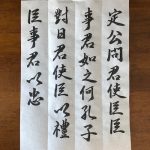 定公問君使臣臣
事君如之何孔子
對曰君使臣以禮
臣事君以忠